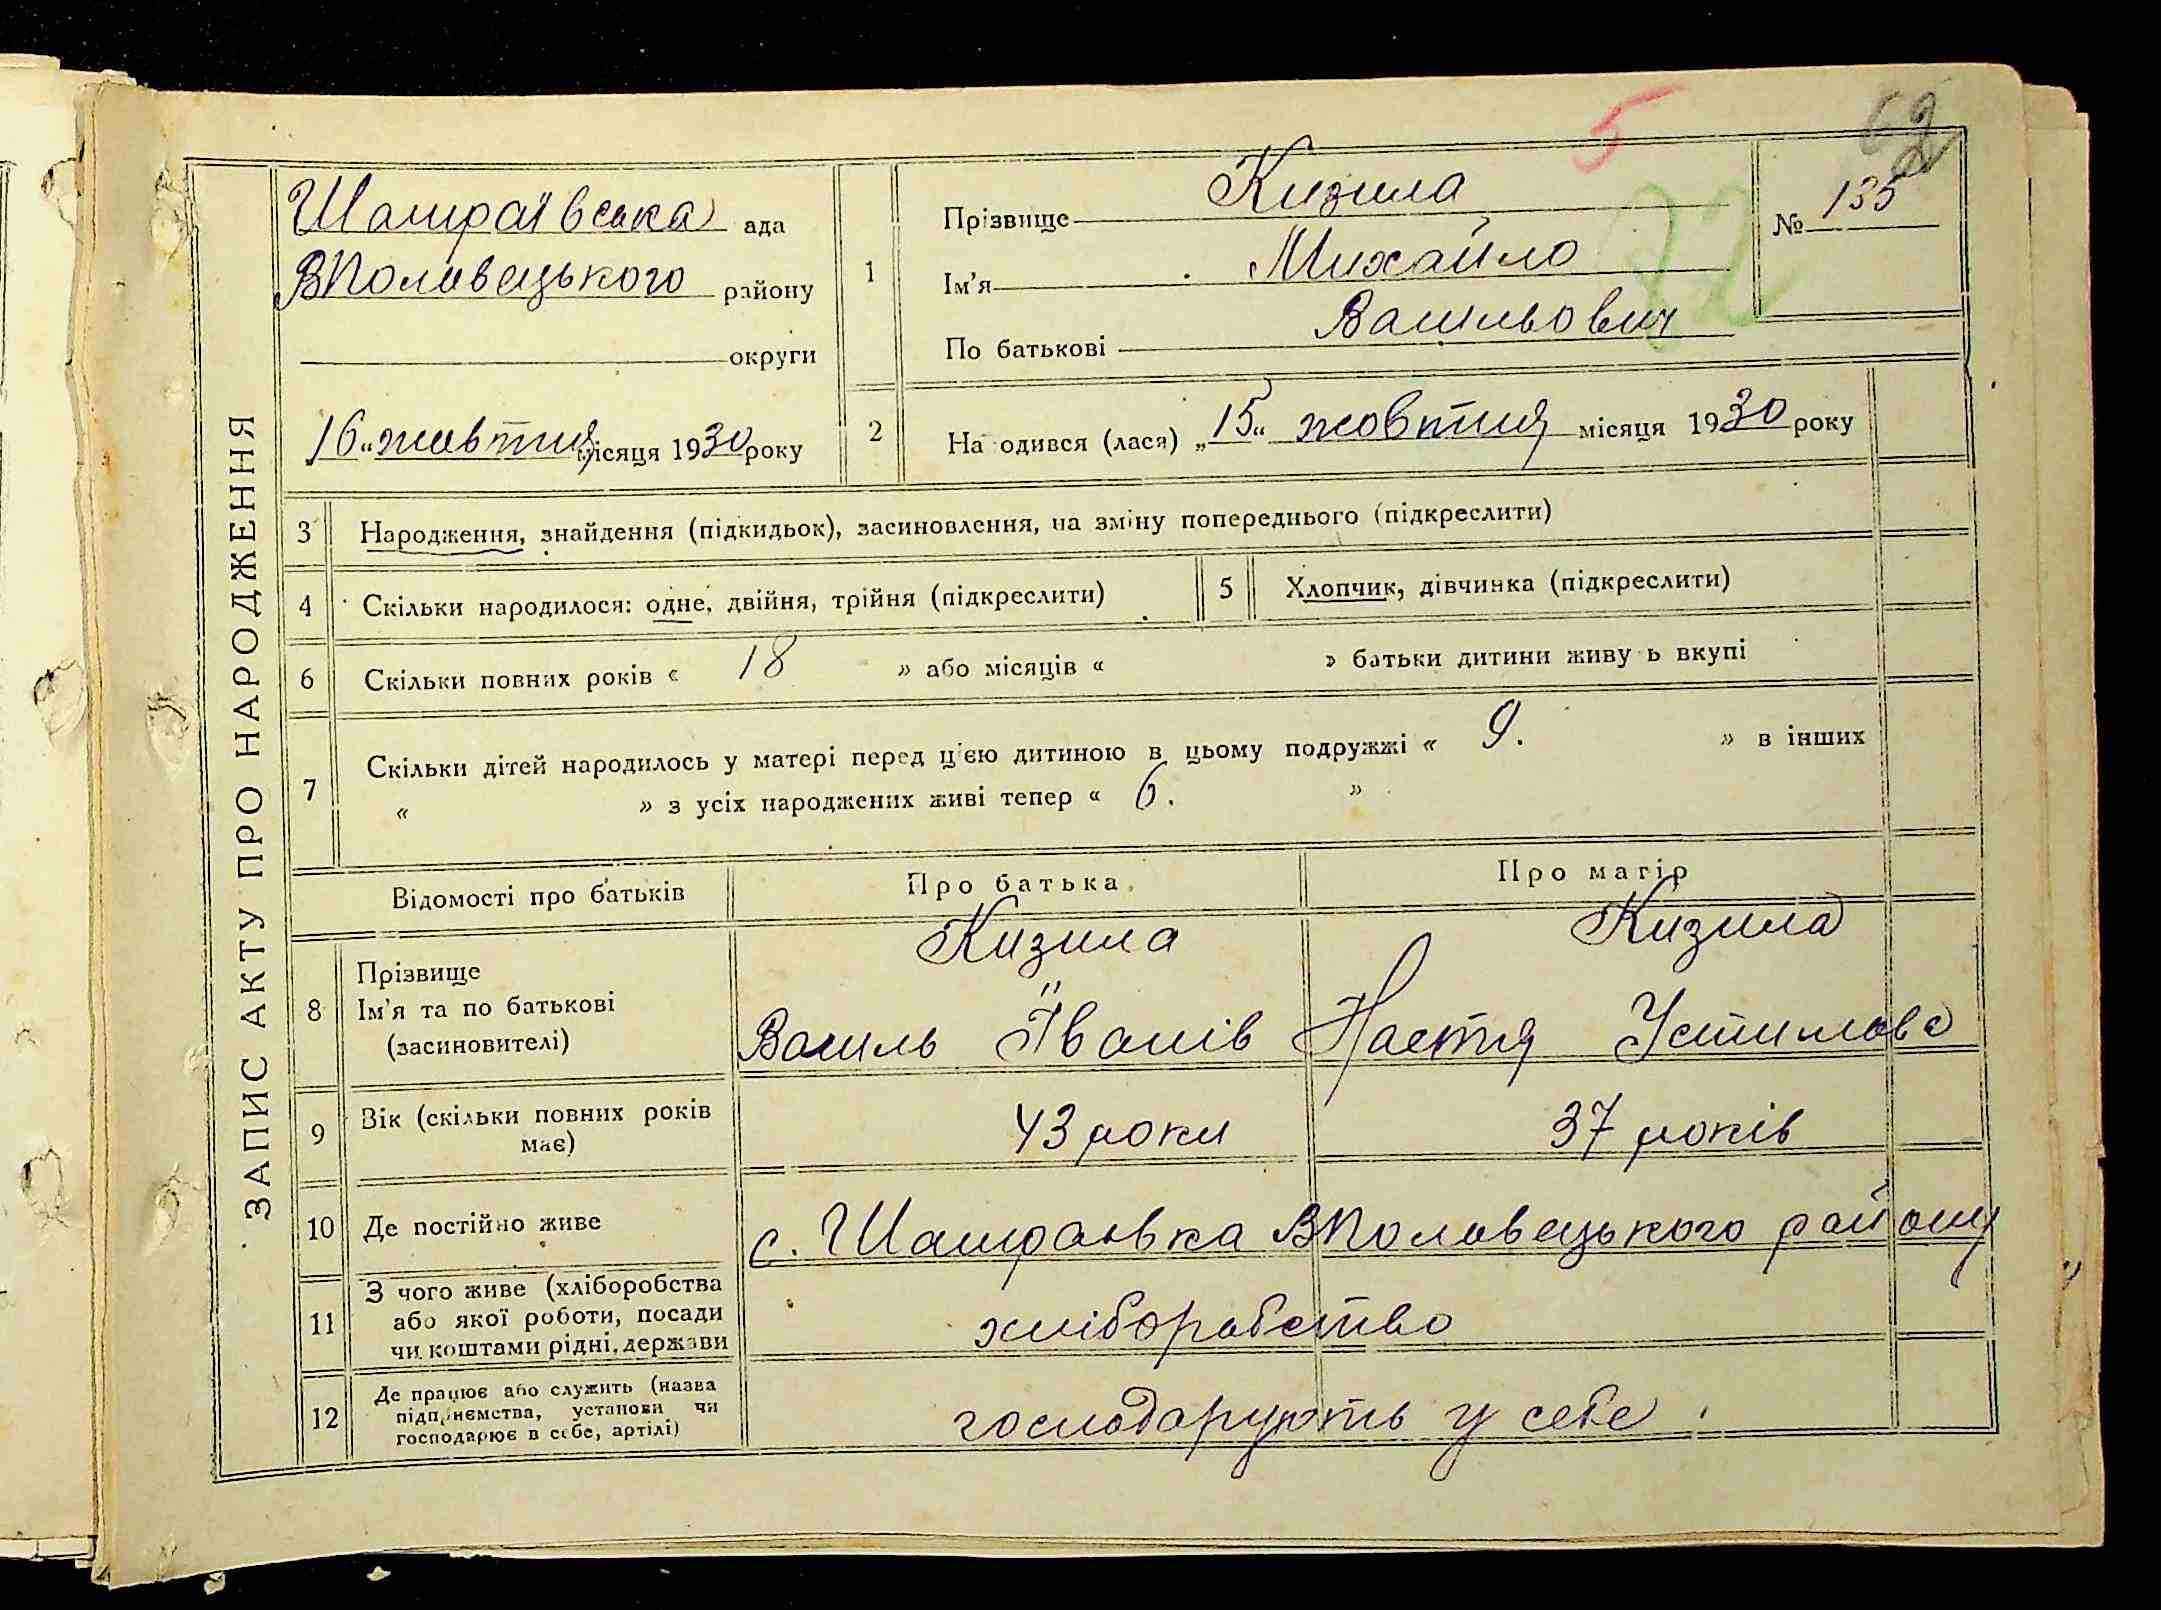 5
62
ЗАПИС АКТУ ПРО НАРОДЖЕННЯ
Шамраївська ада
ВПоловецького району
округи
16 „ жовтня місяця 1930 року
1
Прізвище Кизила
Ім'я Михайло
По батькові Васильович
22
№ 135
2
На одився (лася) „15“ жовтня місяця 1930 року
3 Народження, знайдення (підкидьок), засиновлення, на зміну попереднього (підкреслити)
4 Скільки народилося: одне, двійня, трійня (підкреслити)
5 Хлопчик, дівчинка (підкреслити)
6 Скільки повних років « 18 » або місяців « » батьки дитини живу ь вкупі
7 Скільки дітей народилось у матері перед ц'єю дитиною в цьому подружжі « 9. » в інших
« » з усіх народжених живі тепер « 6. »
Відомості про батьків Про батька Про матір
8 Прізвище
Ім'я та по батькові
(засиновителі)
Кизила
Василь Іванів
Кизила
Настя Устимова
9 Вік (скільки повних років
має)
43 роки 37 років
10 Де постійно живе
с. Шамраївка ВПоловецького району
11 З чого живе (хліборобства
або якої роботи, посади
чи коштами рідні, держави
хліборобство
12 Де працює або служить (назва
підприємства, установи чи
господарює в себе, артілі)
господарують у себе.